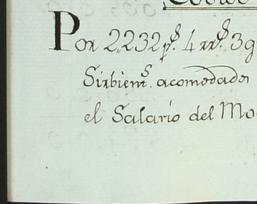 Por 2232 p.s 4 rr.s 39
Sirbient.s acomodados
el Salario del Mo